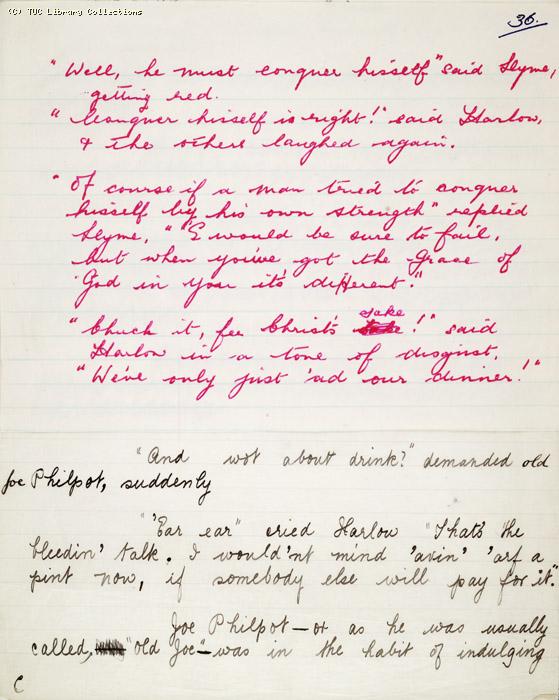 (C) TUC Library Collections
36.
"Well, he must conquer hisself" said Slyme,
getting red.
"Conquer hisself is right!" said Harlow,
& the others laughed again.
"Of course if a man tried to conquer
hisself by his own strength" replied
Slyme, "'E would be sure to fail,
but when you've got the Grace of
God in you it's different."
sake
"Chuck it, fer Christ's !" said
Harlow in a tone of disgust.
"We've only just 'ad our dinner!"
"And wot about drink?" demanded old
Joe Philpot, suddenly
"'Ear 'ear" cried Harlow "That's the
bleedin' talk. I would'nt mind 'avin' 'arf a
pint now, if somebody else will pay for it."
Joe Philpot—or as he was usually
called, "old Joe"—was in the habit of indulging
C